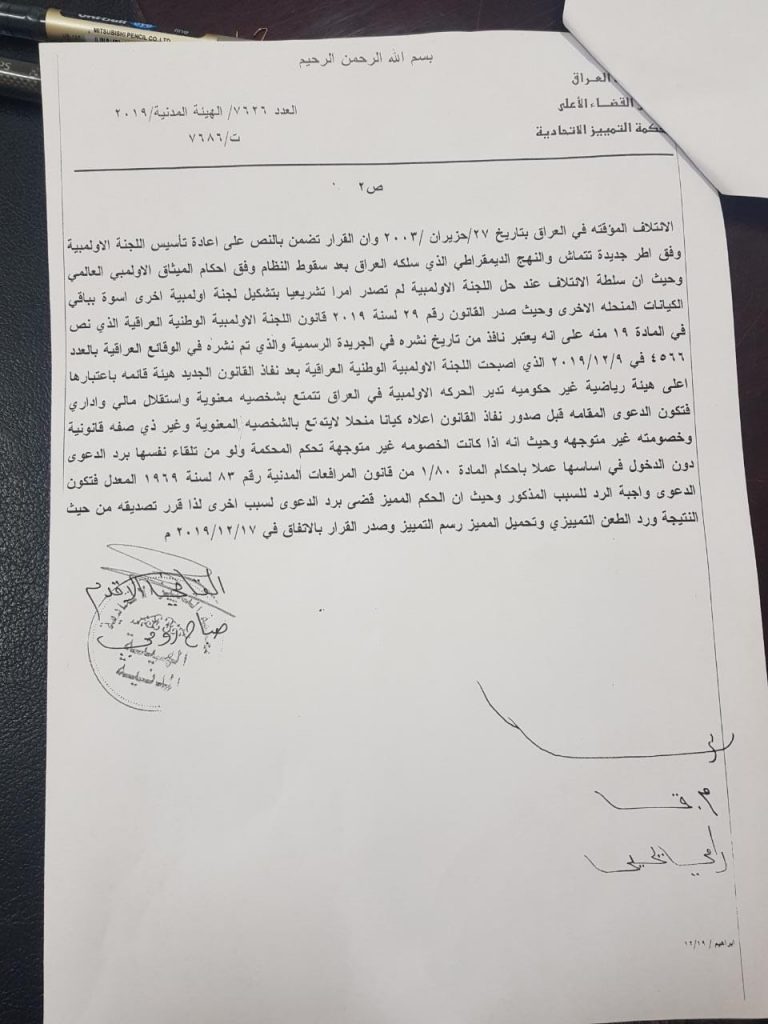 MITSUBISHI PENCIL CO.,LTD
بسم الله الرحمن الرحيم
العراق
القضاء الأعلى
محكمة التمييز الاتحادية
العدد ٧٦٢٦/ الهيئة المدنية/٢٠١٩
ت/٧٦٨٦
ص٢
الائتلاف المؤقته في العراق بتاريخ ٢٧/حزيران /٢٠٠٣ وان القرار تضمن بالنص على اعادة تأسيس اللجنة الاولمبية
وفق اطر جديدة تتماش والنهج الديمقراطي الذي سلكه العراق بعد سقوط النظام وفق احكام الميثاق الاولمبي العالمي
وحيث ان سلطة الائتلاف عند حل اللجنة الاولمبية لم تصدر امرا تشريعيا بتشكيل لجنة اولمبية اخرى اسوة بباقي
الكيانات المنحله الاخرى وحيث صدر القانون رقم ٢٩ لسنة ٢٠١٩ قانون اللجنة الاولمبية الوطنية العراقية الذي نص
في المادة ١٩ منه على انه يعتبر نافذ من تاريخ نشره في الجريدة الرسمية والذي تم نشره في الوقائع العراقية بالعدد
٤٥٦٦ في ٢٠١٩/١٢/٩ الذي اصبحت اللجنة الاولمبية الوطنية العراقية بعد نفاذ القانون الجديد هيئة قائمه باعتبارها
اعلى هيئة رياضية غير حكوميه تدير الحركه الاولمبية في العراق تتمتع بشخصيه معنوية واستقلال مالي واداري
فتكون الدعوى المقامه قبل صدور نفاذ القانون اعلاه كيانا منحلا لايتمتع بالشخصيه المعنوية وغير ذي صفه قانونية
وخصومته غير متوجهه وحيث انه اذا كانت الخصومه غير متوجهة تحكم المحكمة ولو من تلقاء نفسها برد الدعوى
دون الدخول في اساسها عملا باحكام المادة ١/٨٠ من قانون المرافعات المدنية رقم ٨٣ لسنة ١٩٦٩ المعدل فتكون
الدعوى واجبة الرد للسبب المذكور وحيث ان الحكم المميز قضى برد الدعوى لسبب اخرى لذا قرر تصديقه من حيث
النتيجة ورد الطعن التمييزي وتحميل المميز رسم التمييز وصدر القرار بالاتفاق في ٢٠١٩/١٢/١٧ م
القاضي الاقدم
صباح رومي
الهيئة
المدنية
ابراهيم / ١٢/١٩